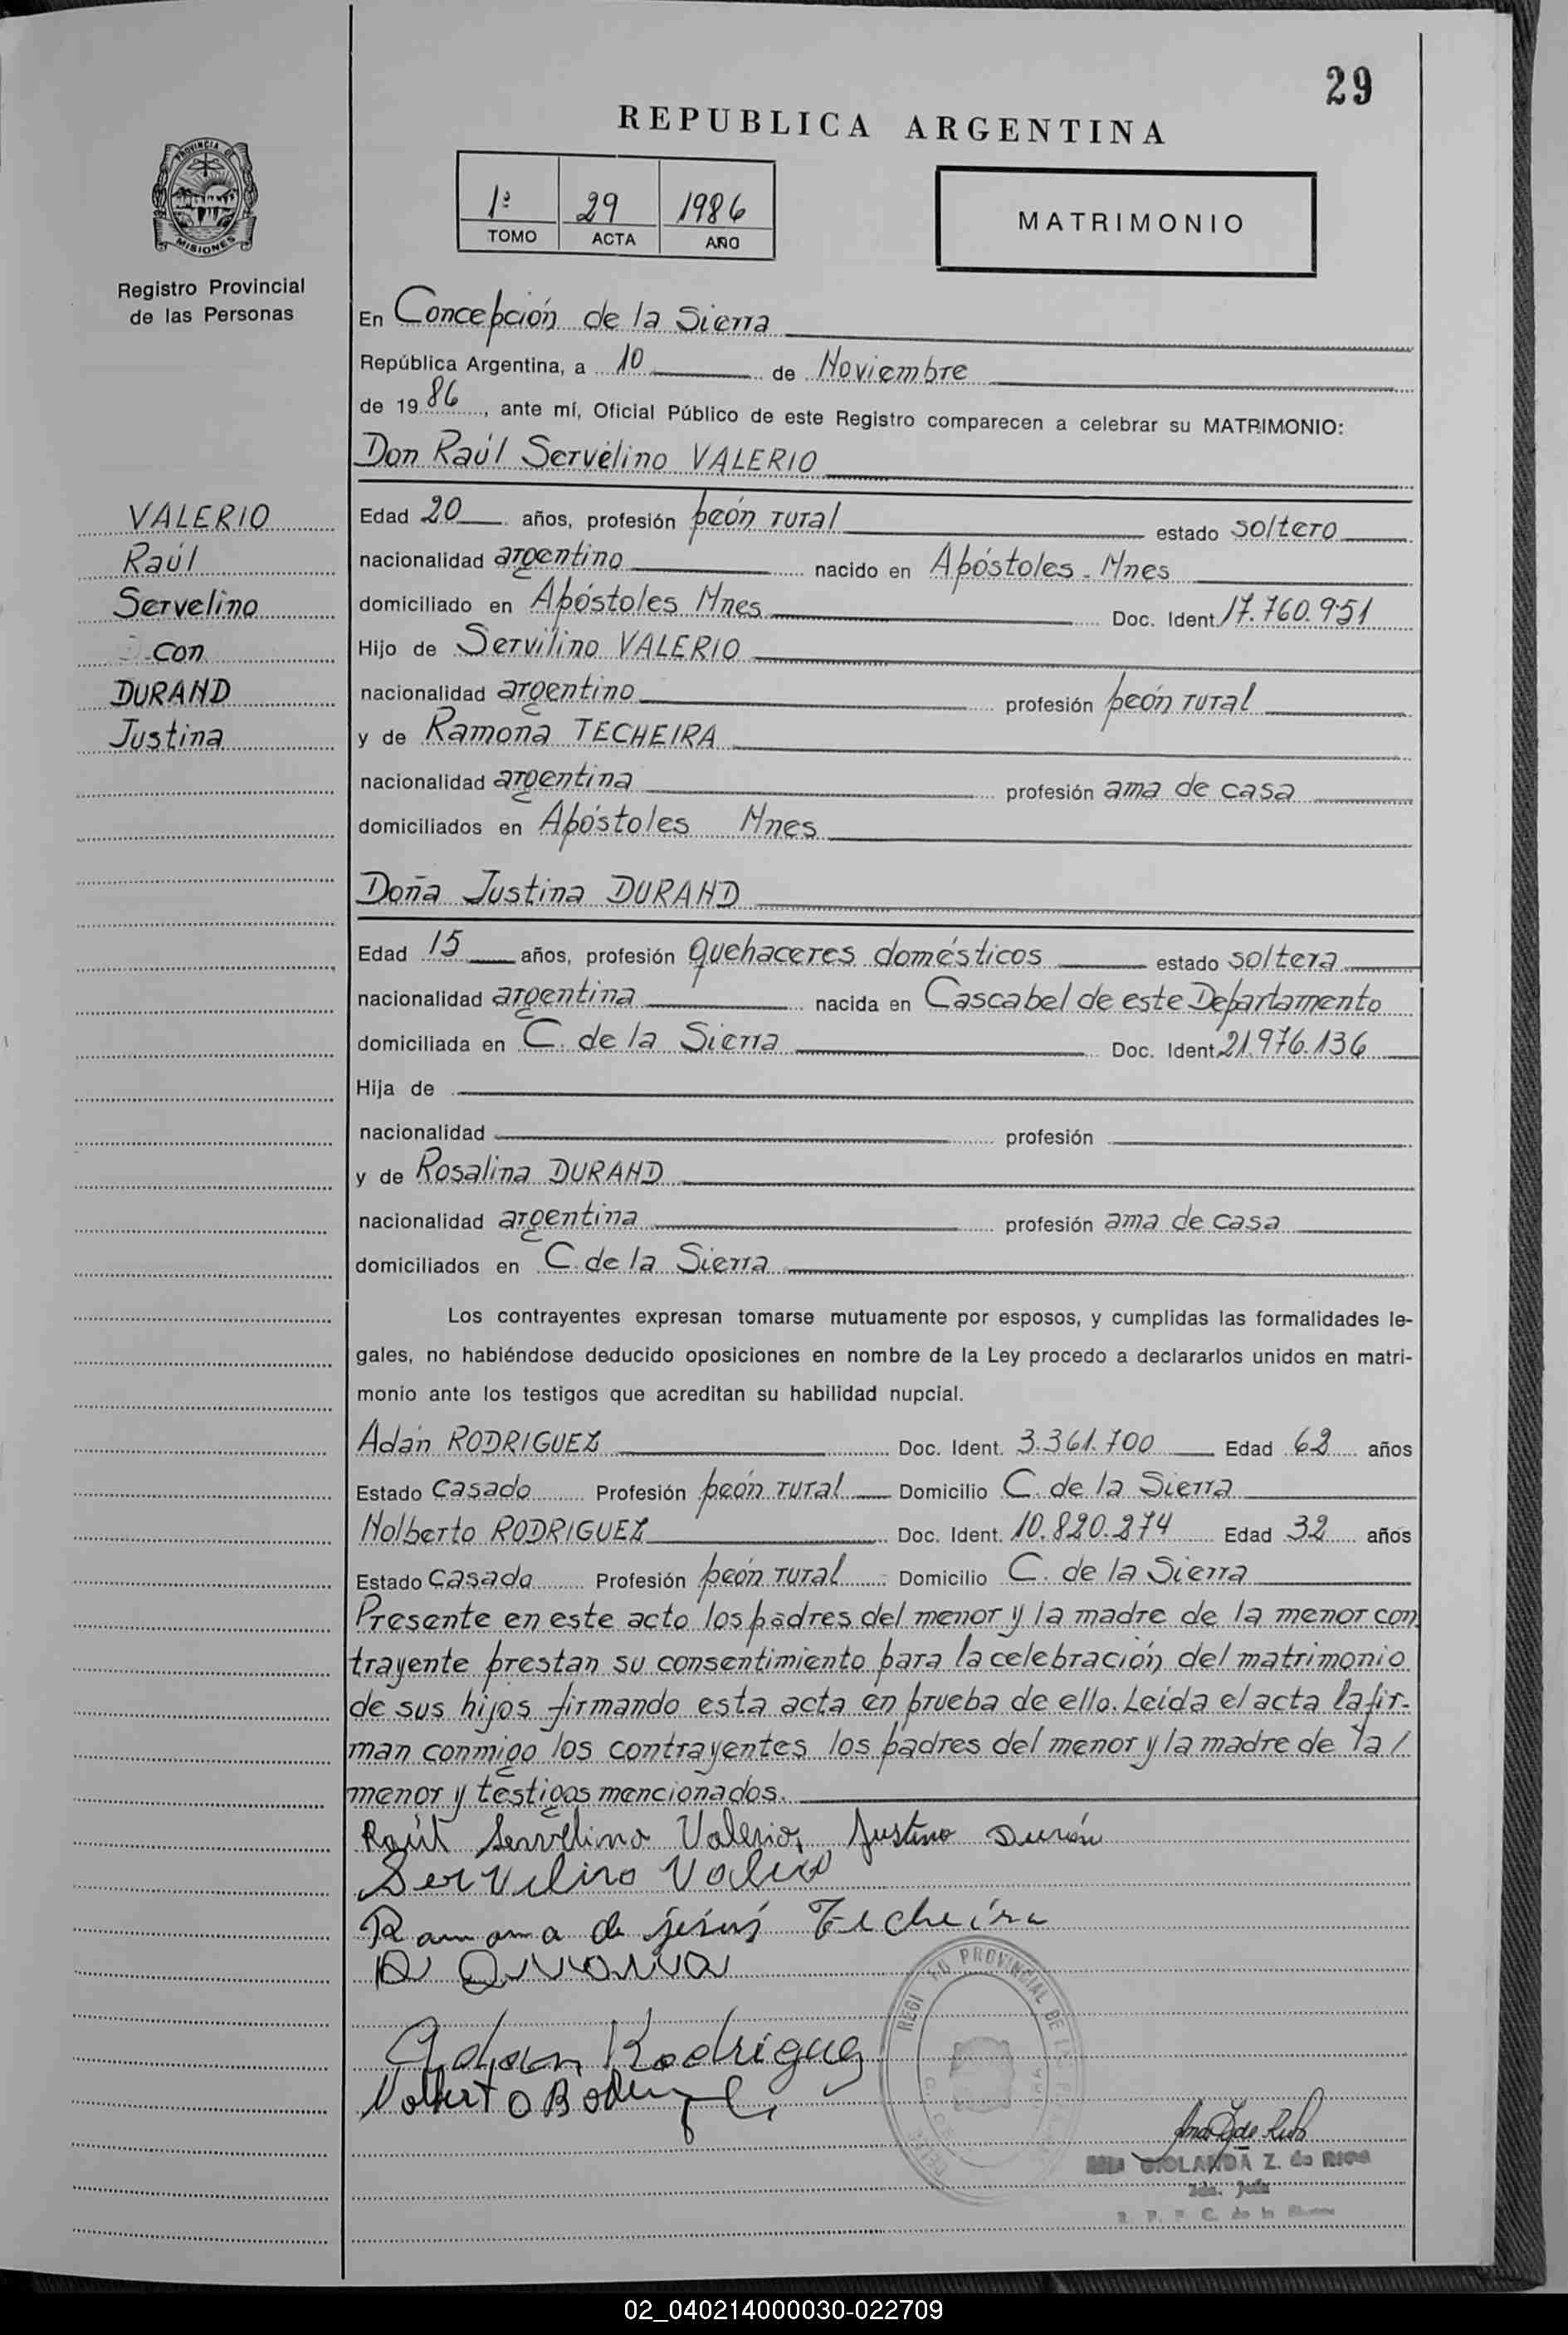 29
REPUBLICA ARGENTINA
1º 29 1986
TOMO ACTA AÑO
MATRIMONIO
PROVINCIA DE
MISIONES
Registro Provincial
de las Personas
En Concepción de la Sierra
República Argentina, a 10 de Noviembre
de 1986, ante mí, Oficial Público de este Registro comparecen a celebrar su MATRIMONIO:
Don Raúl Servelino VALERIO
VALERIO
Raúl
Servelino
con
DURAND
Justina
Edad 20 años, profesión peón rural estado soltero
nacionalidad argentino nacido en Apóstoles - Mnes
domiciliado en Apóstoles Mnes Doc. Ident. 17.760.951
Hijo de Servilino VALERIO
nacionalidad argentino profesión peón rural
y de Ramona TECHEIRA
nacionalidad argentina profesión ama de casa
domiciliados en Apóstoles Mnes
Doña Justina DURAND
Edad 15 años, profesión quehaceres domésticos estado soltera
nacionalidad argentina nacida en Cascabel de este Departamento
domiciliada en C. de la Sierra Doc. Ident. 21.976.136
Hija de
nacionalidad profesión
y de Rosalina DURAND
nacionalidad argentina profesión ama de casa
domiciliados en C. de la Sierra
Los contrayentes expresan tomarse mutuamente por esposos, y cumplidas las formalidades le-
gales, no habiéndose deducido oposiciones en nombre de la Ley procedo a declararlos unidos en matri-
monio ante los testigos que acreditan su habilidad nupcial.
Adán RODRIGUEZ Doc. Ident. 3.361.700 Edad 62 años
Estado Casado Profesión peón rural Domicilio C. de la Sierra
Nolberto RODRIGUEZ Doc. Ident. 10.820.274 Edad 32 años
Estado Casado Profesión peón rural Domicilio C. de la Sierra
Presente en este acto los padres del menor y la madre de la menor con
trayente prestan su consentimiento para la celebración del matrimonio
de sus hijos firmando esta acta en prueba de ello. Leída el acta la fir-
man conmigo los contrayentes los padres del menor y la madre de la /
menor y testigos mencionados.
Raúl Servelino Valerio, Justina Durán
Servelino Valerio
Ramona de jesús Techeíra
Adan Rodriguez
REGI PROVINCIAL DE
Z. de RIOS
C. de la
02_040214000030-022709